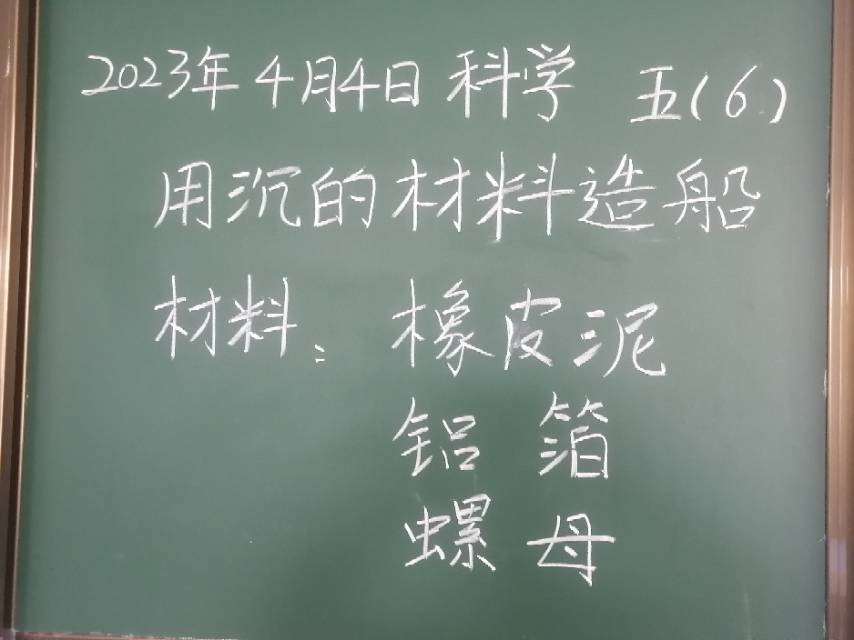 2023年4月4日 科学 五(6)
用沉的材料造船
材料: 橡皮泥
铝箔
螺母